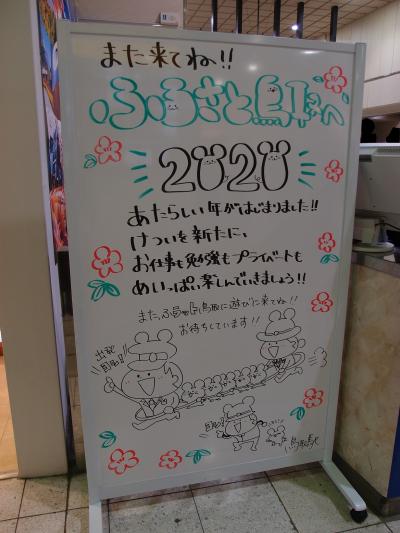 また来てね!!
ふるさと鳥取へ
2020
あたらしい年がはじまりました!!
けついを新たに、
お仕事も勉強もプライベートも
めいっぱい楽しんでいきましょう!!
鳥取に遊びに来てね!!
お待ちしています!!